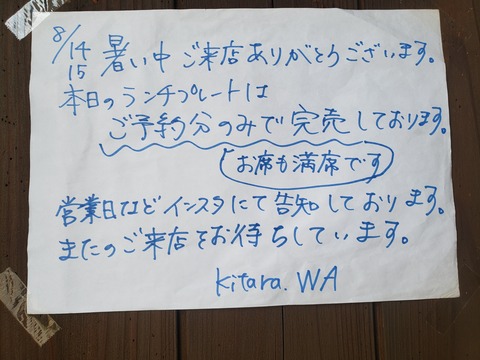 8/14
15 暑い中 ご来店ありがとうございます。
本日のランチプレートは
ご予約分のみで完売しております。
お席も満席です
営業日などインスタにて告知しております。
またのご来店をお待ちしています。
Kitara. WA